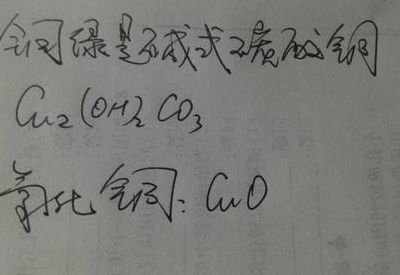 铜绿是碱式碳酸铜
Cu2(OH)2CO3
氧化铜:CuO